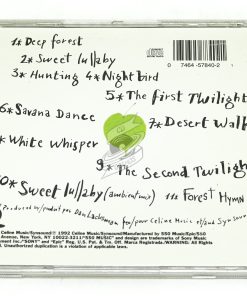 1* Deep forest
2* Sweet lullaby
3* Hunting 4* Night bird
5* The first Twilight
6* Savana Dance
7* Desert Walk
* White Whisper
9* The Second Twilight
10* Sweet lullaby (ambient mix)
11* Forest Hymn
0 7464-57840-2 1
Celine Music/Synsound © 1992 Celine Music/Synsound/Manufactured by 550 Music/Epic/550
Avenue, New York, NY 10022-3211/"550 MUSIC" and design are trademarks of Sony Music
Inc./"SONY" and "Epic" Reg. U.S. Pat. & Tm. Off. Marca Registrada./WARNING: All Rights
Unauthorized duplication is a violation of applicable laws.